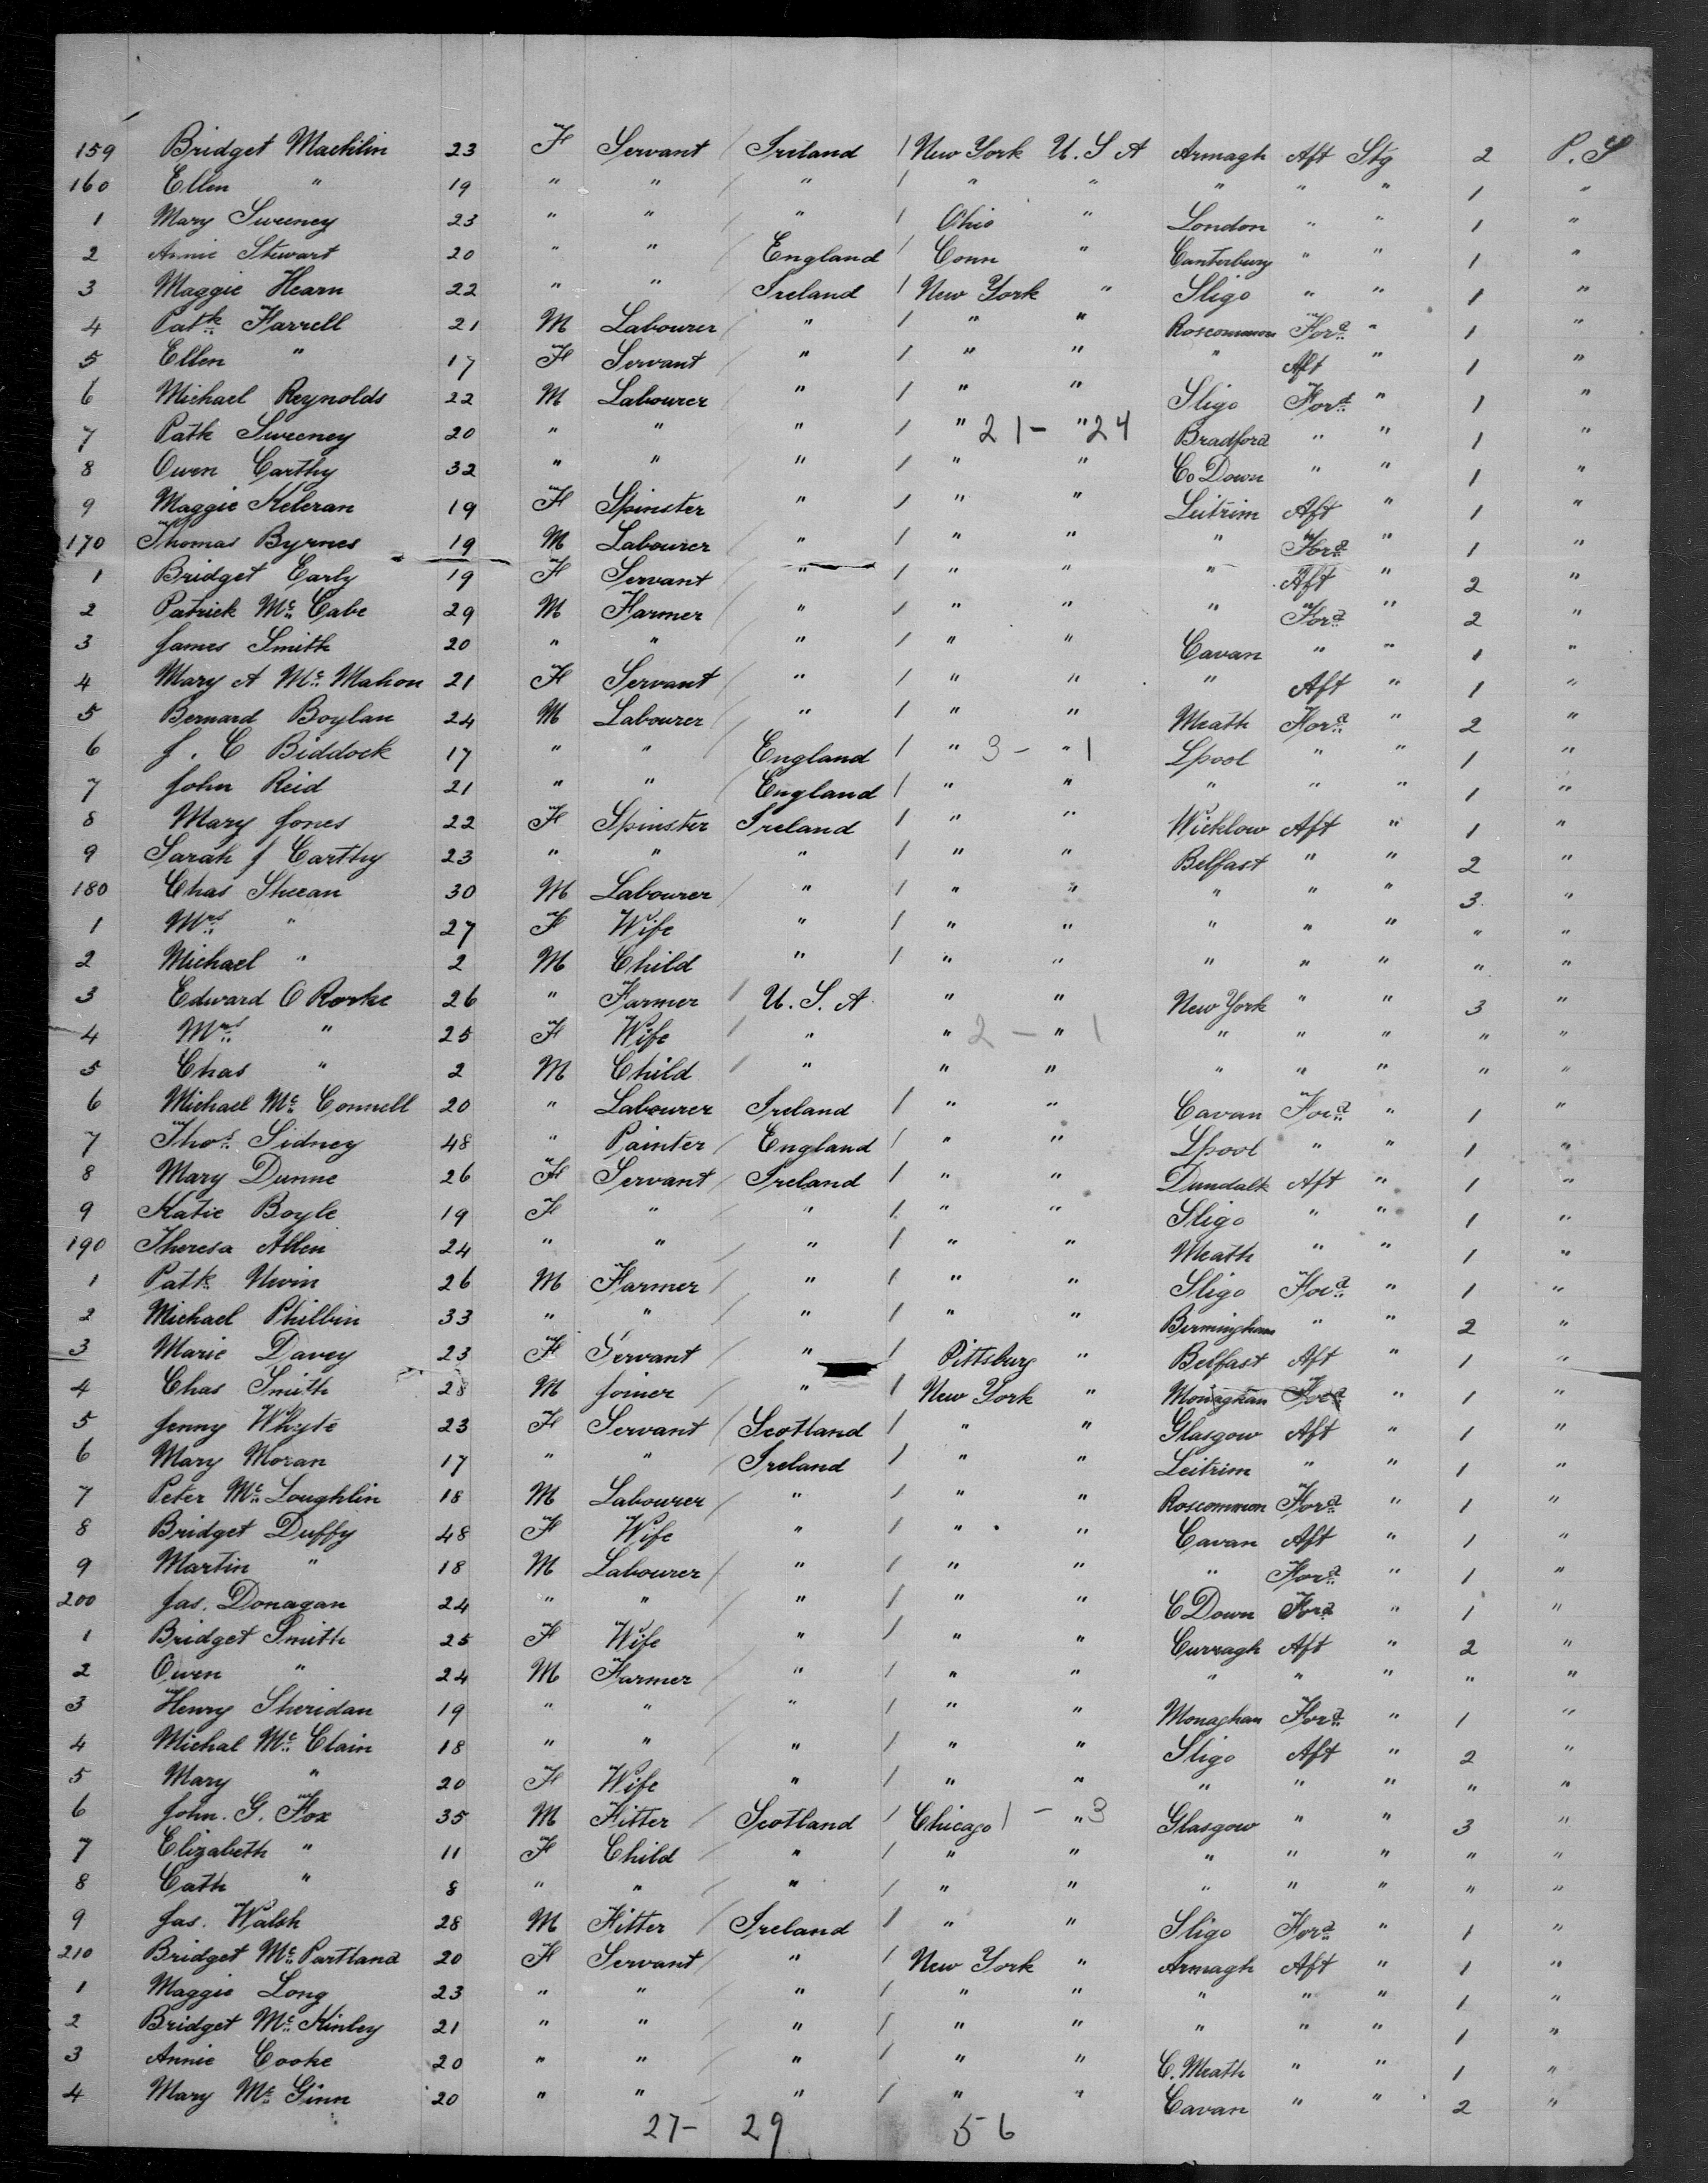 159 Bridget Macklin 23 F Servant / Ireland / New York U.S.A Armagh Aft Stg 2 P.S
160 Ellen " 19 " " / " / " " " " " 1 "
1 Mary Sweeney 23 " " / " / Ohio " London " " 1 "
2 Annie Stewart 20 " " / England / Conn " Canterbury " " 1 "
3 Maggie Hearn 22 " " / Ireland / New York " Sligo " " 1 "
4 Patk Farrell 21 M Labourer / " / " " Roscommon Ford " 1 "
5 Ellen " 17 F Servant / " / " " " Aft " 1 "
6 Michael Reynolds 22 M Labourer / " / " " Sligo Ford " 1 "
7 Patk Sweeney 20 " " / " / " 21 - " 24 Bradford " " 1 "
8 Owen Carthy 32 " " / " / " " Co Down " " 1 "
9 Maggie Keleran 19 F Spinster " / " " Leitrim Aft " 1 "
170 Thomas Byrnes 19 M Labourer / " / " " " Ford " 1 "
1 Bridget Early 19 F Servant / " / " " " Aft " 2 "
2 Patrick Mc Cabe 29 M Farmer / " / " " " Ford " 2 "
3 James Smith 20 " " / " / " " Cavan " " 1 "
4 Mary A Mc Mahon 21 F Servant / " / " " " Aft " 1 "
5 Bernard Boylan 24 M Labourer / " / " " Meath Ford " 2 "
6 J. C Biddock 17 " " / England / " 3 - " 1 Lpool " " 1 "
7 John Reid 21 " " / England / " " " " " 1 "
8 Mary Jones 22 F Spinster Ireland / " " Wicklow Aft " 1 "
9 Sarah J Carthy 23 " " " / " " Belfast " " 2 "
180 Chas Sheean 30 M Labourer / " / " " " " " 3 "
1 Mrs " 27 F Wife " / " " " " " " "
2 Michael " 2 M Child " / " " " " " " "
3 Edward O Rorke 26 " Farmer / U.S.A " " New York " " 3 "
4 Mrs " 25 F Wife / " " 2 - " 1 " " " " "
5 Chas " 2 M Child / " " " " " " " "
6 Michael Mc Connell 20 " Labourer Ireland / " " Cavan Ford " 1 "
7 Thos Sidney 48 " Painter / England / " " Lpool " " 1 "
8 Mary Dunne 26 F Servant / Ireland / " " Dundalk Aft " 1 "
9 Katie Boyle 19 F " / " / " " Sligo " " 1 "
190 Theresa Allen 24 " " / " / " " Meath " " 1 "
1 Patk Nevin 26 M Farmer / " / " " Sligo Ford " 1 "
2 Michael Philbin 33 " " / " / " " Birmingham " " 2 "
3 Marie Davey 23 F Servant / " / Pittsburg " Belfast Aft " 1 "
4 Chas Smith 28 M Joiner / " / New York " Monaghan Ford " 1 "
5 Jenny Whyte 23 F Servant / Scotland / " " Glasgow Aft " 1 "
6 Mary Moran 17 " " Ireland / " " Leitrim " " 1 "
7 Peter Mc Loughlin 18 M Labourer / " / " " Roscommon Ford " 1 "
8 Bridget Duffy 48 F Wife " / " " Cavan Aft " 1 "
9 Martin " 18 M Labourer / " / " " " Ford " 1 "
200 Jas. Donagan 24 " " / " / " " C Down Ford " 1 "
1 Bridget Smith 25 F Wife / " / " " Curragh Aft " 2 "
2 Owen " 24 M Farmer / " / " " " " " " "
3 Henry Sheridan 19 " " / " / " " Monaghan Ford " 1 "
4 Michal Mc Clain 18 " " / " / " " Sligo Aft " 2 "
5 Mary " 20 F Wife " / " " " " " " "
6 John. G. Fox 35 M Fitter / Scotland / Chicago 1 - " 3 Glasgow " " 3 "
7 Elizabeth " 11 F Child / " / " " " " " " "
8 Cath " 8 " " / " / " " " " " " "
9 Jas. Walsh 28 M Fitter / Ireland / " " Sligo Ford " 1 "
210 Bridget Mc Partland 20 F Servant / " / New York " Armagh Aft " 1 "
1 Maggie Long 23 " " / " / " " " " " 1 "
2 Bridget Mc Kinley 21 " " / " / " " " " " 1 "
3 Annie Cooke 20 " " / " / " " C. Meath " " 1 "
4 Mary Mc Ginn 20 " " / " / " " Cavan " " 2 "
27 - 29 56